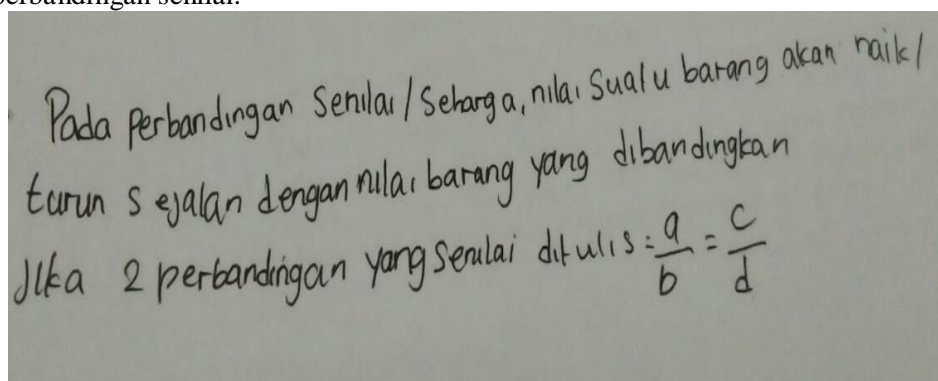 perbandingan senilai.
Pada perbandingan Senilai/Seharga, nilai Suatu barang akan naik/
turun sejalan dengan nilai barang yang dibandingkan
Jika 2 perbandingan yang senilai ditulis: a/b = c/d